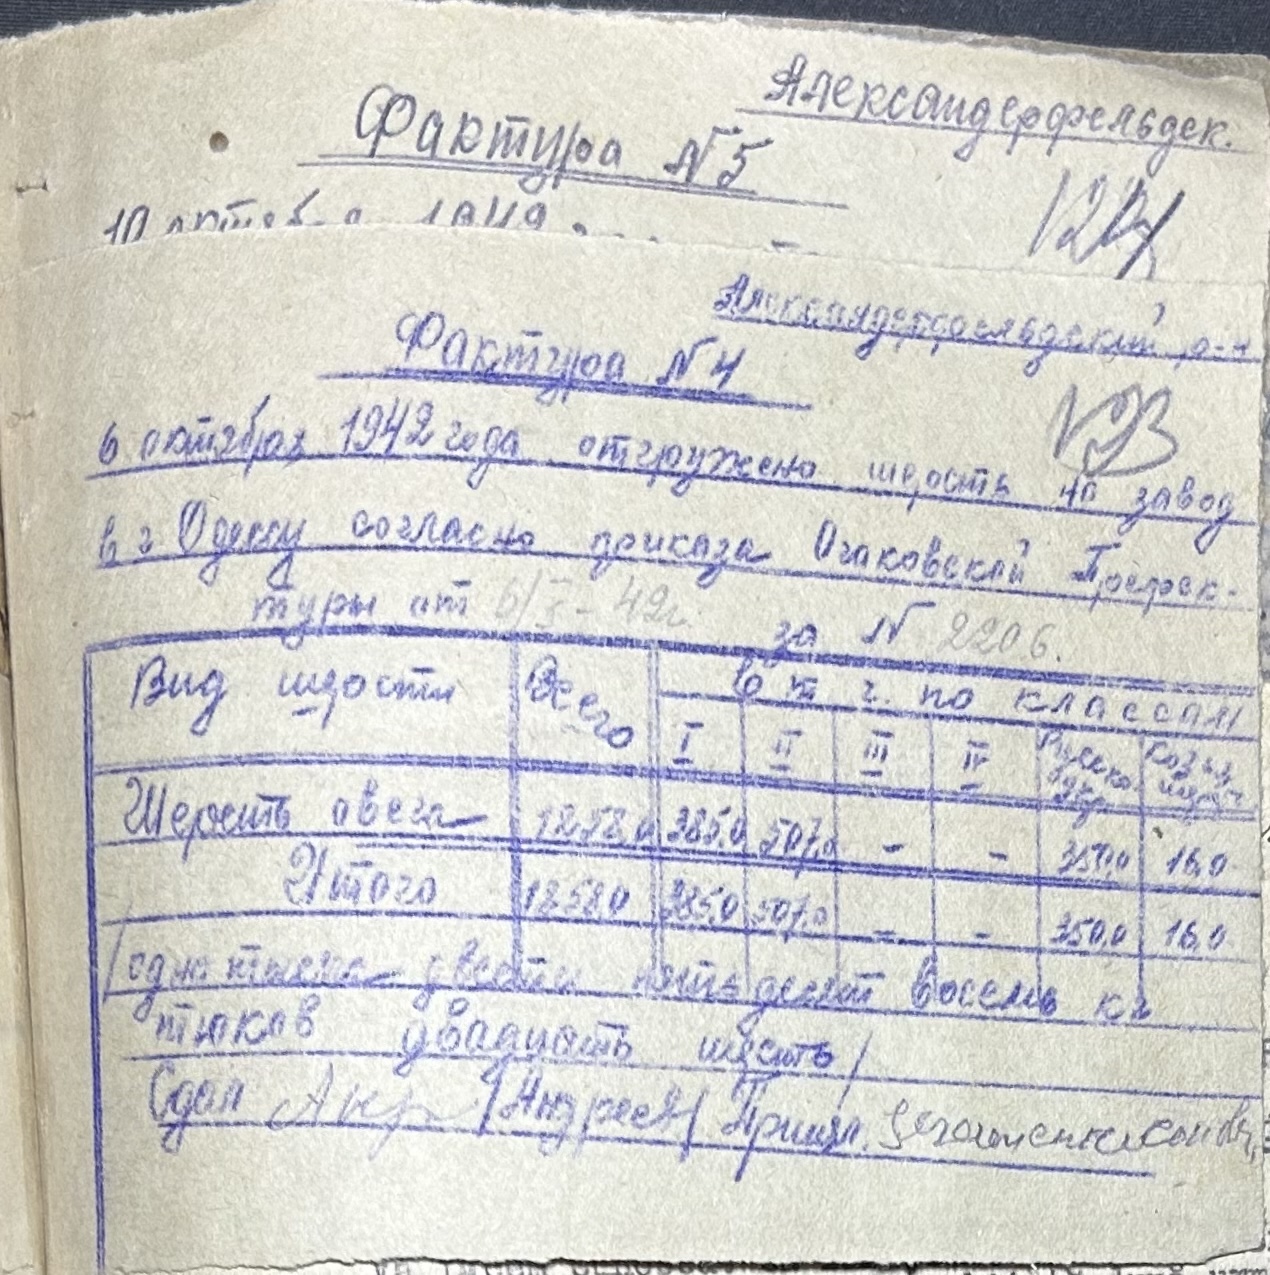 Александерфельдск.
Фактура N 5
124
10 октября 1942
Александерфельдский р-н
Фактура N 4
123
6 октября 1942 года отгружено шерость на завод
в г Одессу согласно приказа Очаковской Префек-
туры от 6/X - 42г. за N 2206.
Вид шерости Всего В т ч. по классам
I II III IV
Шерость овечя 1258,0 385,0 507,0 - - 350,0 16,0
Итого 1258,0 385,0 507,0 - - 350,0 16,0
/одна тысяча двести пятьдесят восемь кг
тюков двадцать шесть/
Сдал /Андреев/ Принял.